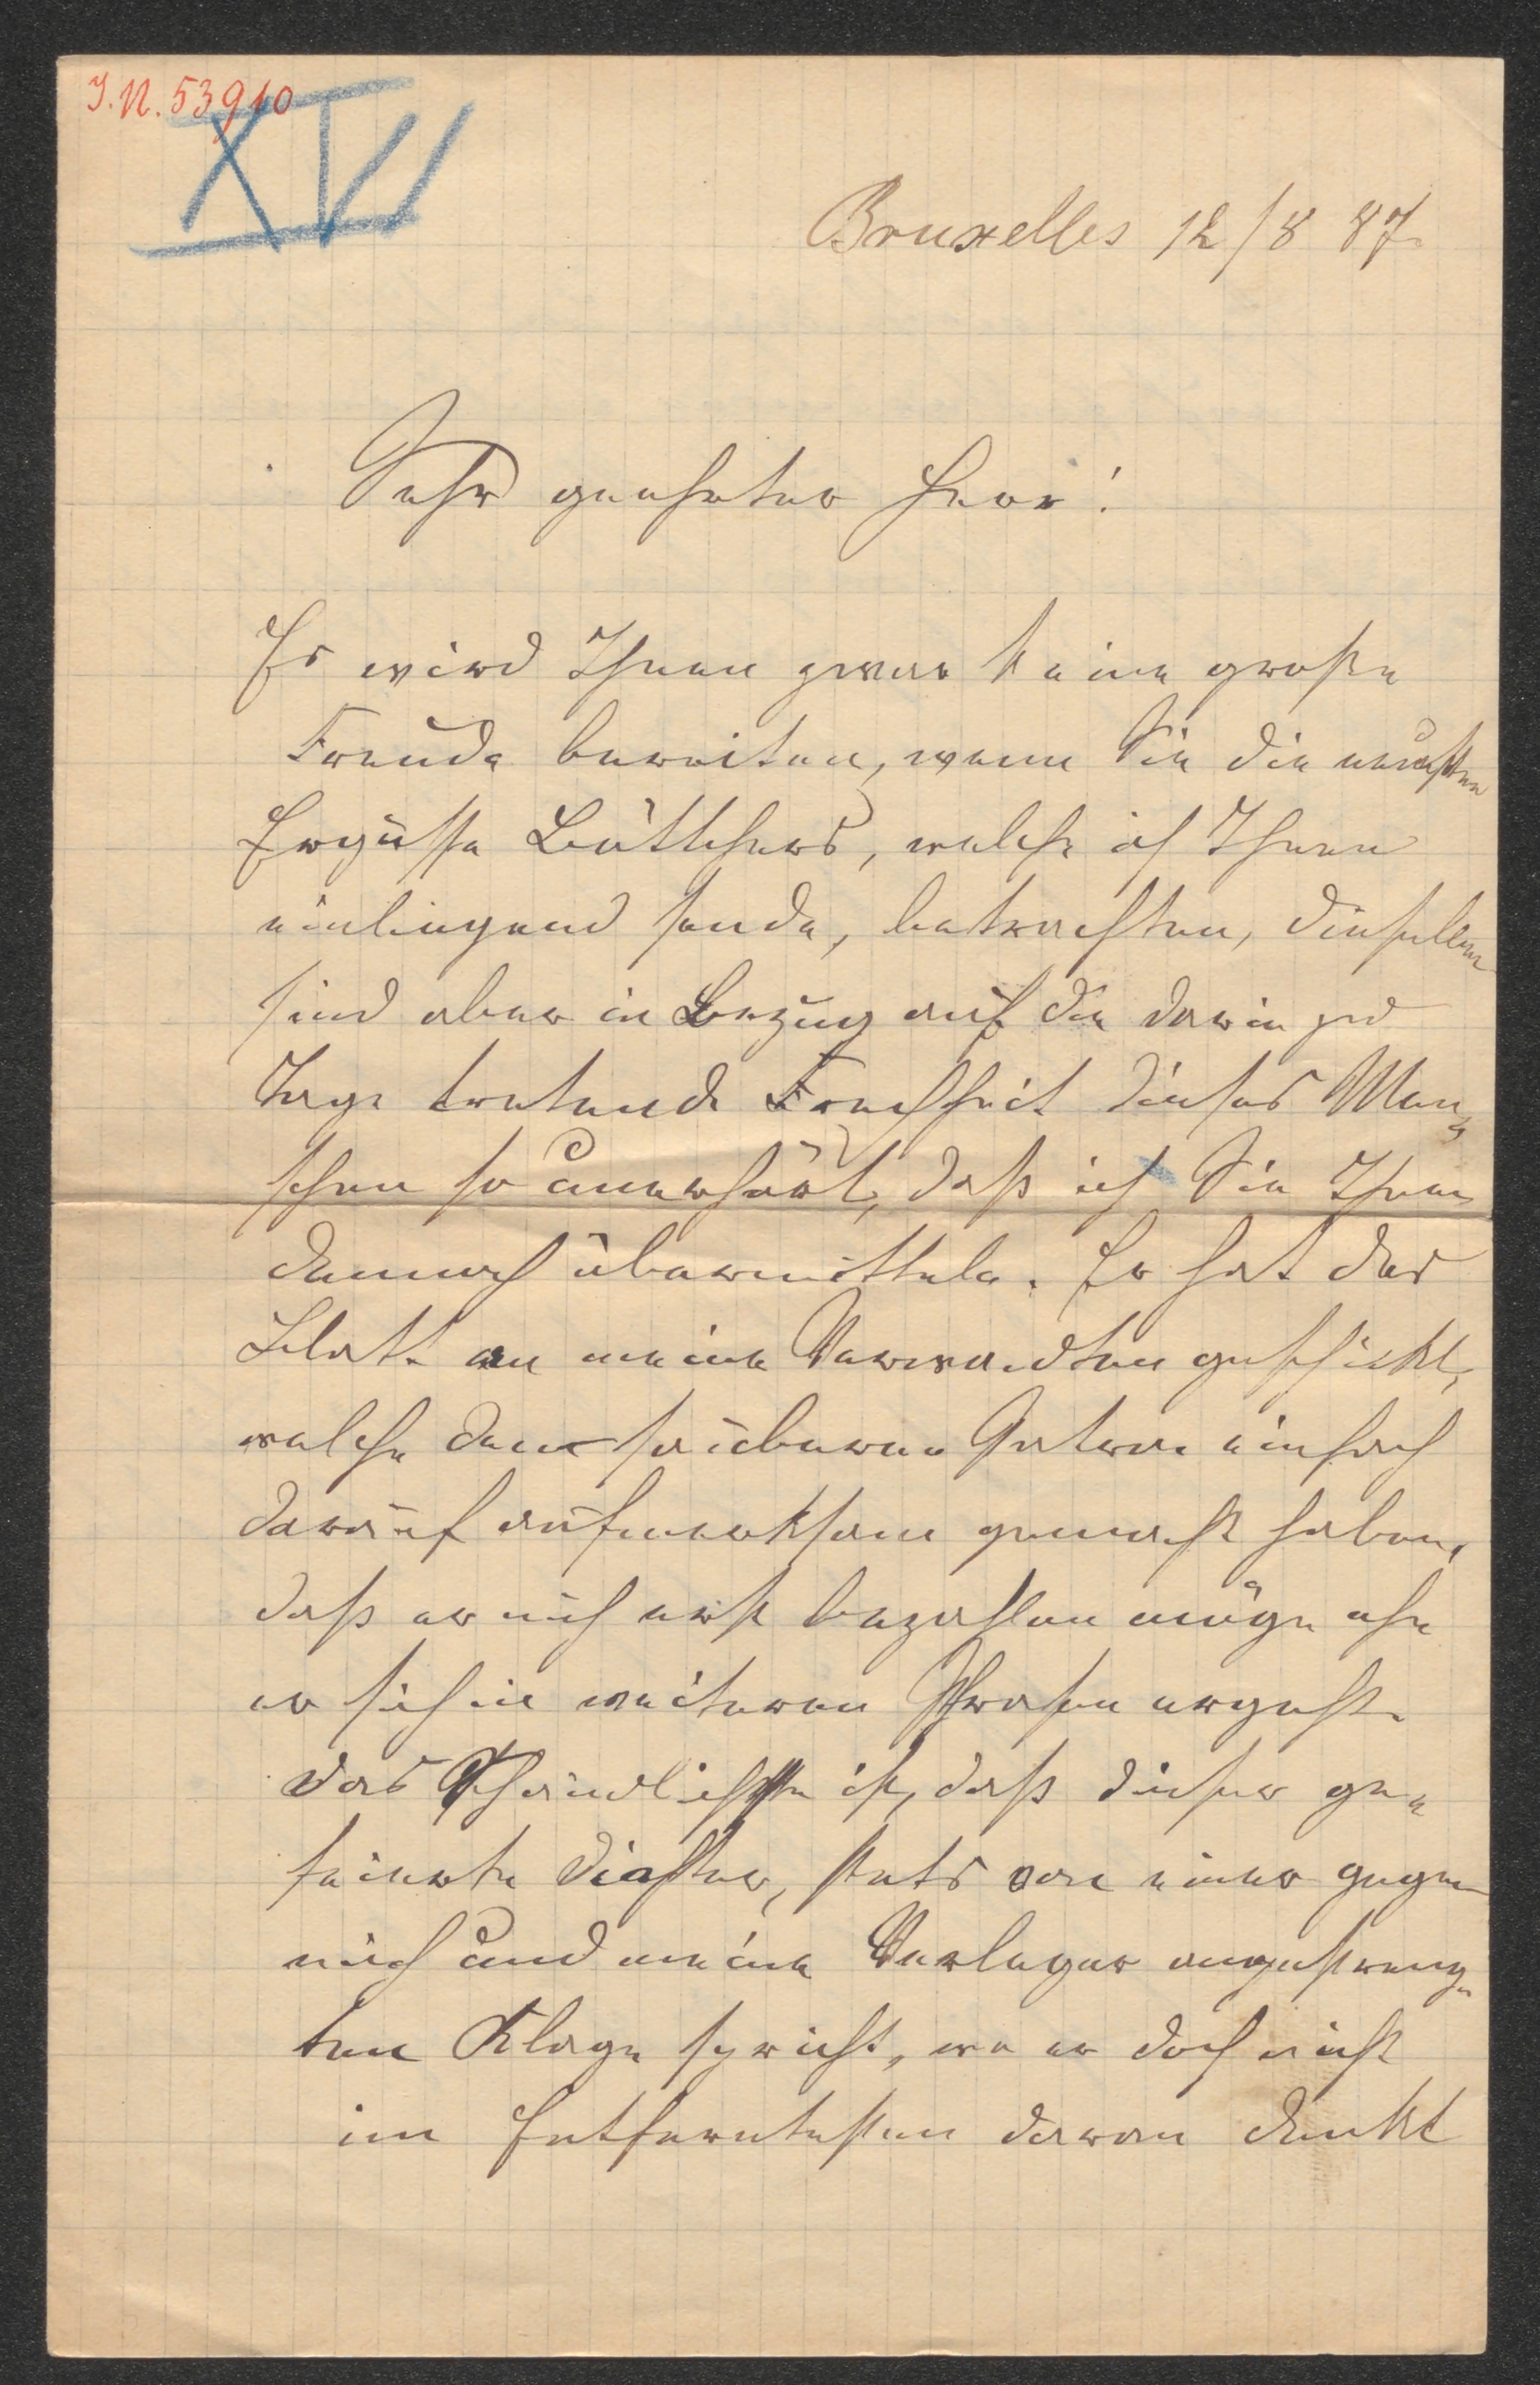 J.N. 53910
XVI
Bruxelles 12/8 87.
Sehr geehrter Herr!
Es wird Ihnen zwar keine große
Freude bereiten, wenn Sie die neuesten
Ergüsse Büttchers, welche ich Ihnen
einliegend sende, betrachten, dieselben
sind aber in Bezug auf die darin zu
Tage tretende Frechheit dieses Men-
schen so unerhört, daß ich Sie Ihnen
dennoch übermittele. Er hat das
Blatt an meine Verwandten geschickt,
welche dem sauberen Patron einfach
darauf aufmerksam gemacht haben,
daß er mich erst bezahlen möge ehe
er sich in weiteren Phrasen ergeht.
Das Schändlichste ist, daß dieser ge-
feierte Dichter, stets von einer gegen
mich und meine Verleger angestreng-
ten Klage spricht, wo er doch nicht
im Entferntesten daran denkt